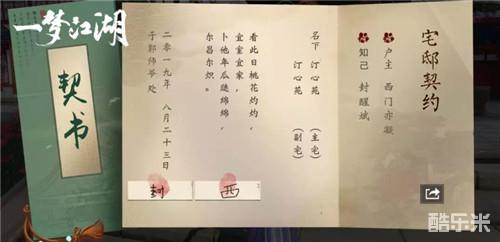 一梦江湖
契书
宅邸契约
户主 西门亦凝
知己 封醒斌
名下 汀心苑 （主宅）
汀心苑 （副宅）
看此日桃花灼灼，
宜室宜家，
卜他年瓜瓞绵绵，
尔昌尔炽。
二零一九年 八月二十三日
于郭师爷处
封
西
酷乐米